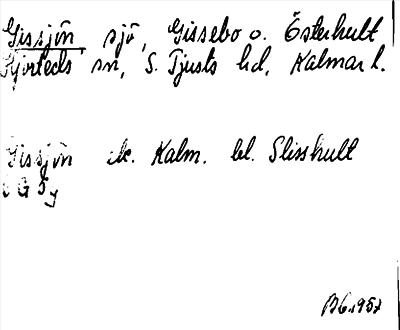 Gissjön, sjö, Gissebo o. Österhult
Hjorteds sn, S. Tjusts hd, Kalmar l.
Gissjön ek. Kalm. bl. Slisshult
G 5 y
1957